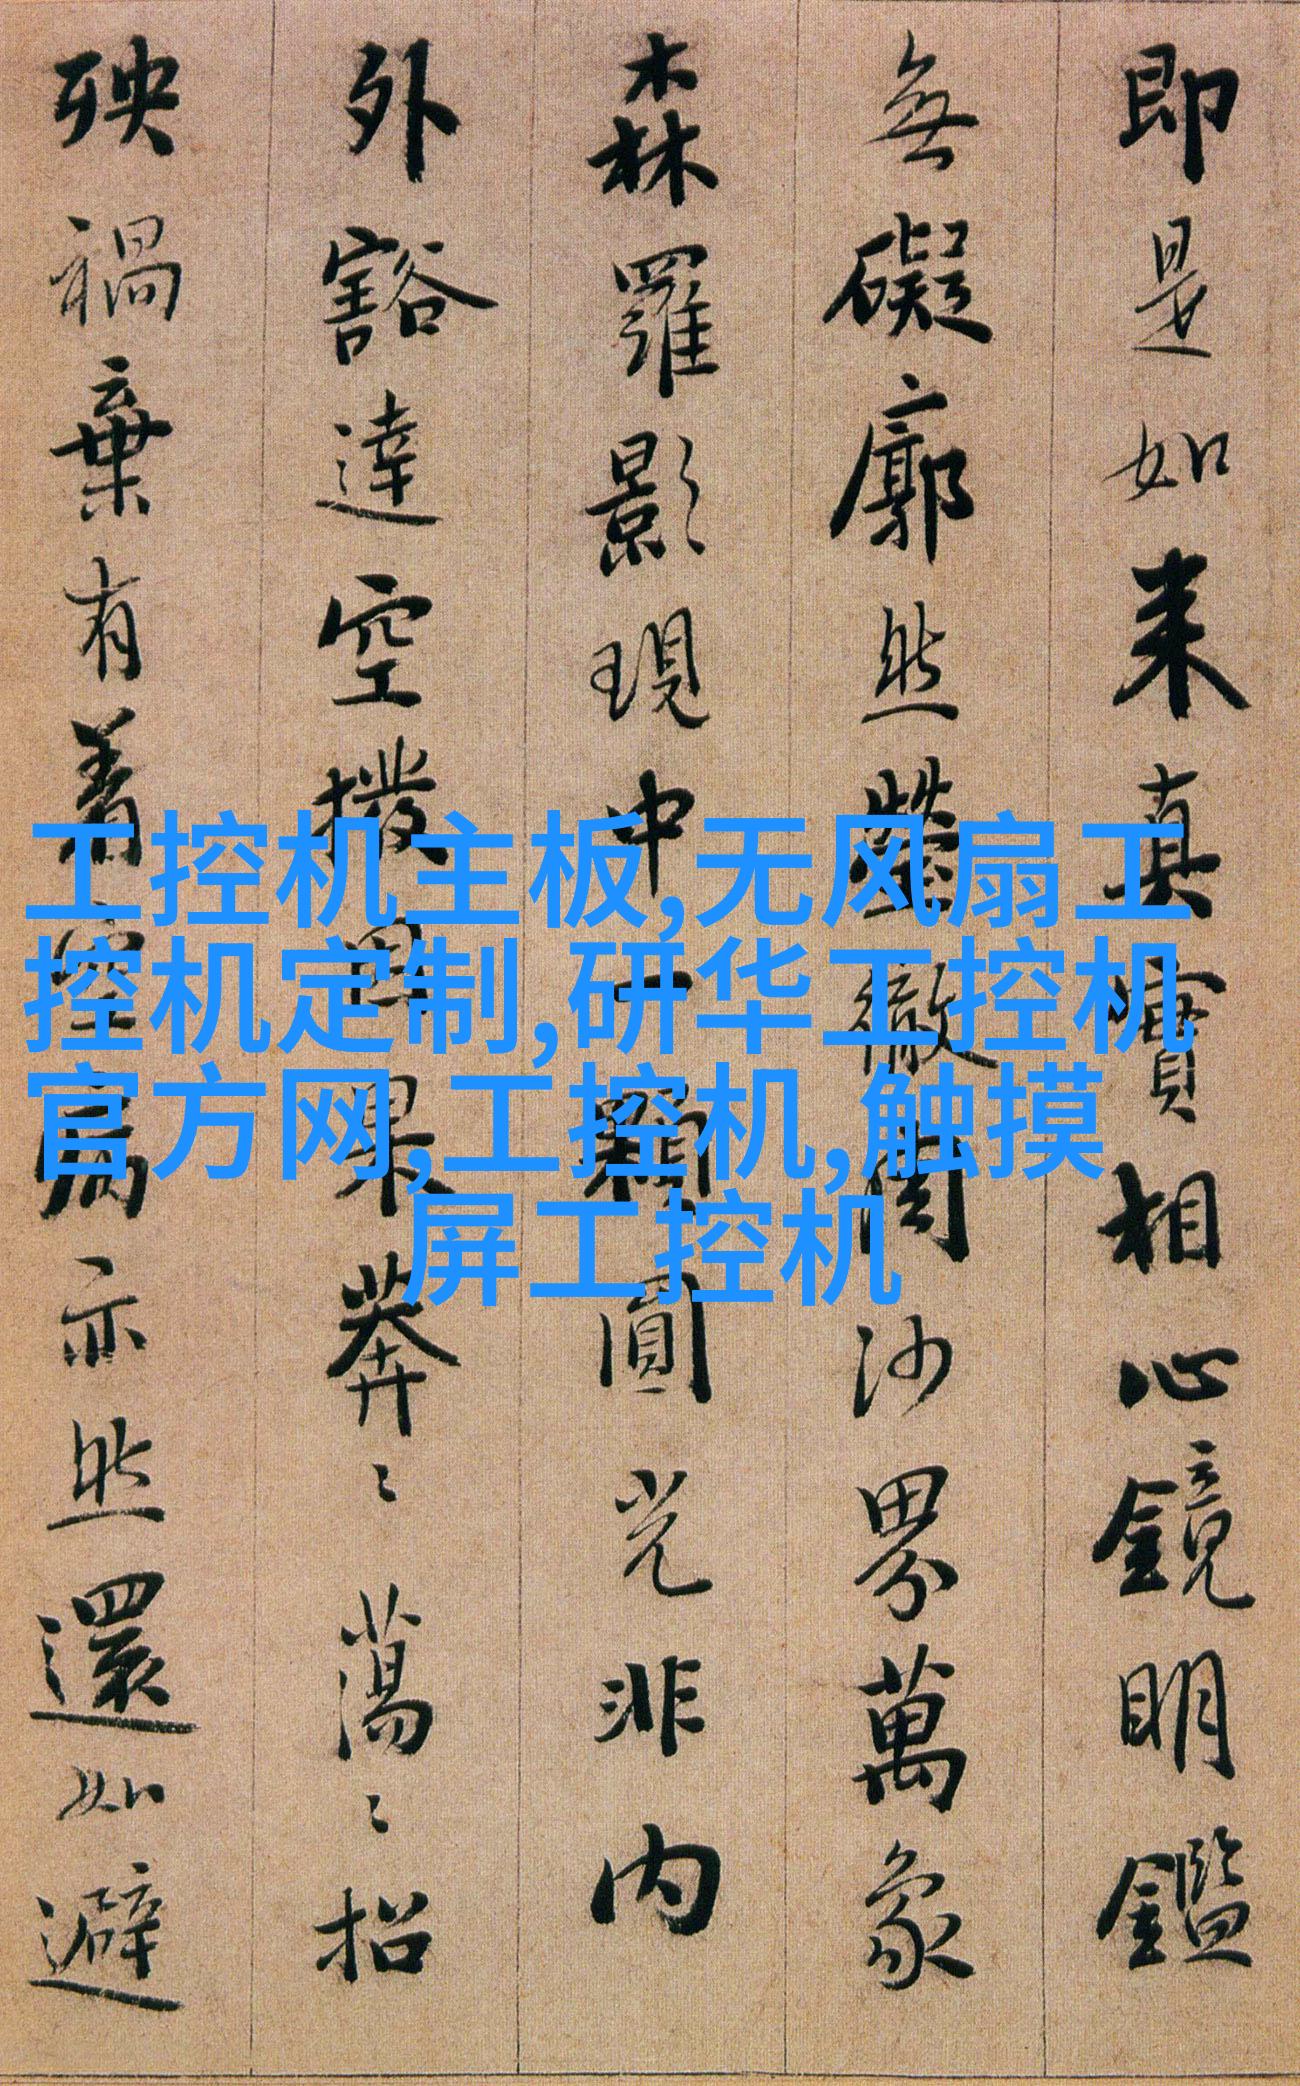 即是如来真實相心鏡明鑑
無礙廓然瑩徹周沙界萬象
森羅影現中一顆圓光非内
外豁達空撥因果莽〻蕩〻招
殃禍棄有着空病亦然還如避
工控机主板,无风扇工
控机定制,研华工控机
官方网,工控机,触摸
屏工控机